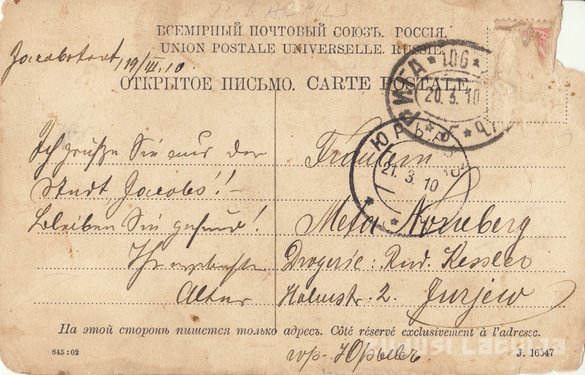 ВСЕМІРНЫЙ ПОЧТОВЫЙ СОЮЗЪ. РОССІЯ.
UNION POSTALE UNIVERSELLE. RUSSIE.
ОТКРЫТОЕ ПИСЬМО. CARTE POSTALE.
19/III.10
РИГА
106
20. 3. 10
ЮРЬЕВ
21. 3. 10
Ich grüße Sie aus der
Stadt Jacobs!! –
Bleiben Sie gesund!
Ihr
Fräulein
Meta Nomeberg
Drogerie: Rud. Kessler
Holmstr. 2. Jurjew
На этой сторонѣ пишется только адресъ. Côté réservé exclusivement à l'adresse.
гор. Юрьевъ
845:02
J. 16547